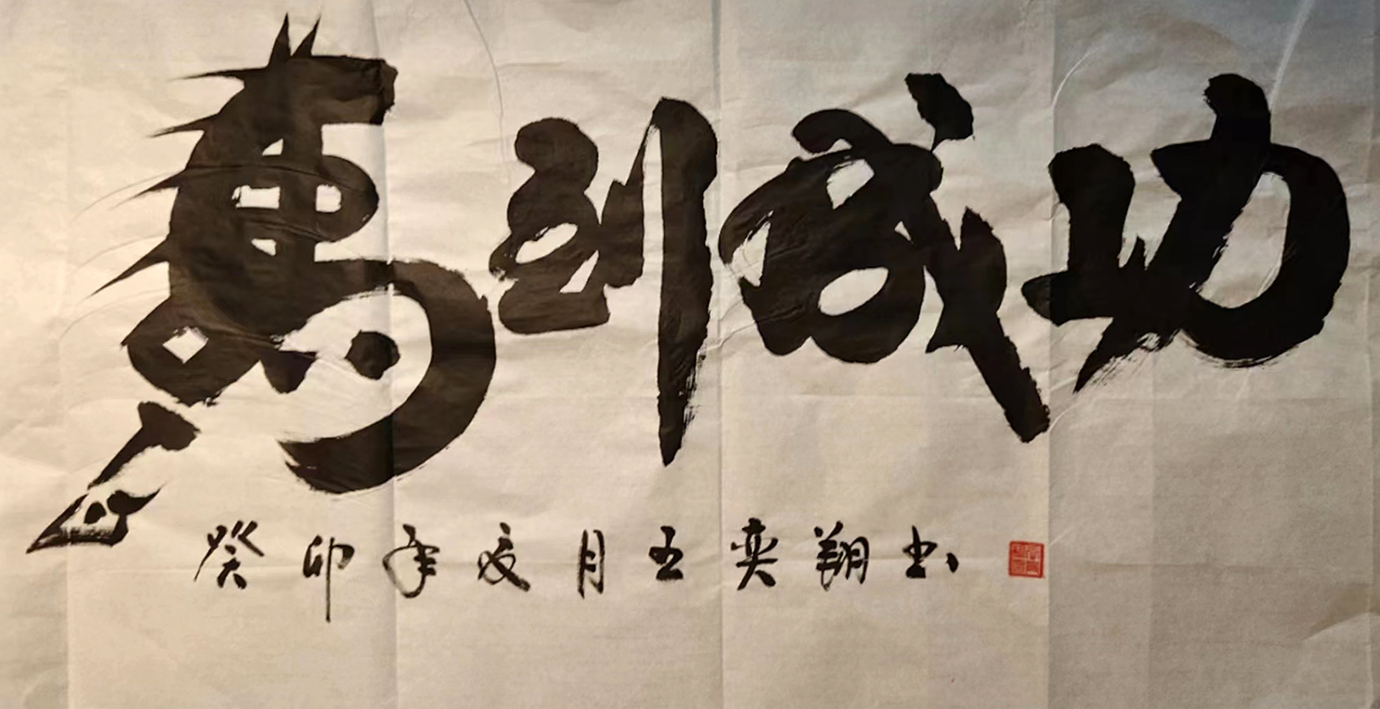 馬到成功
癸卯年夏月王奕翔书